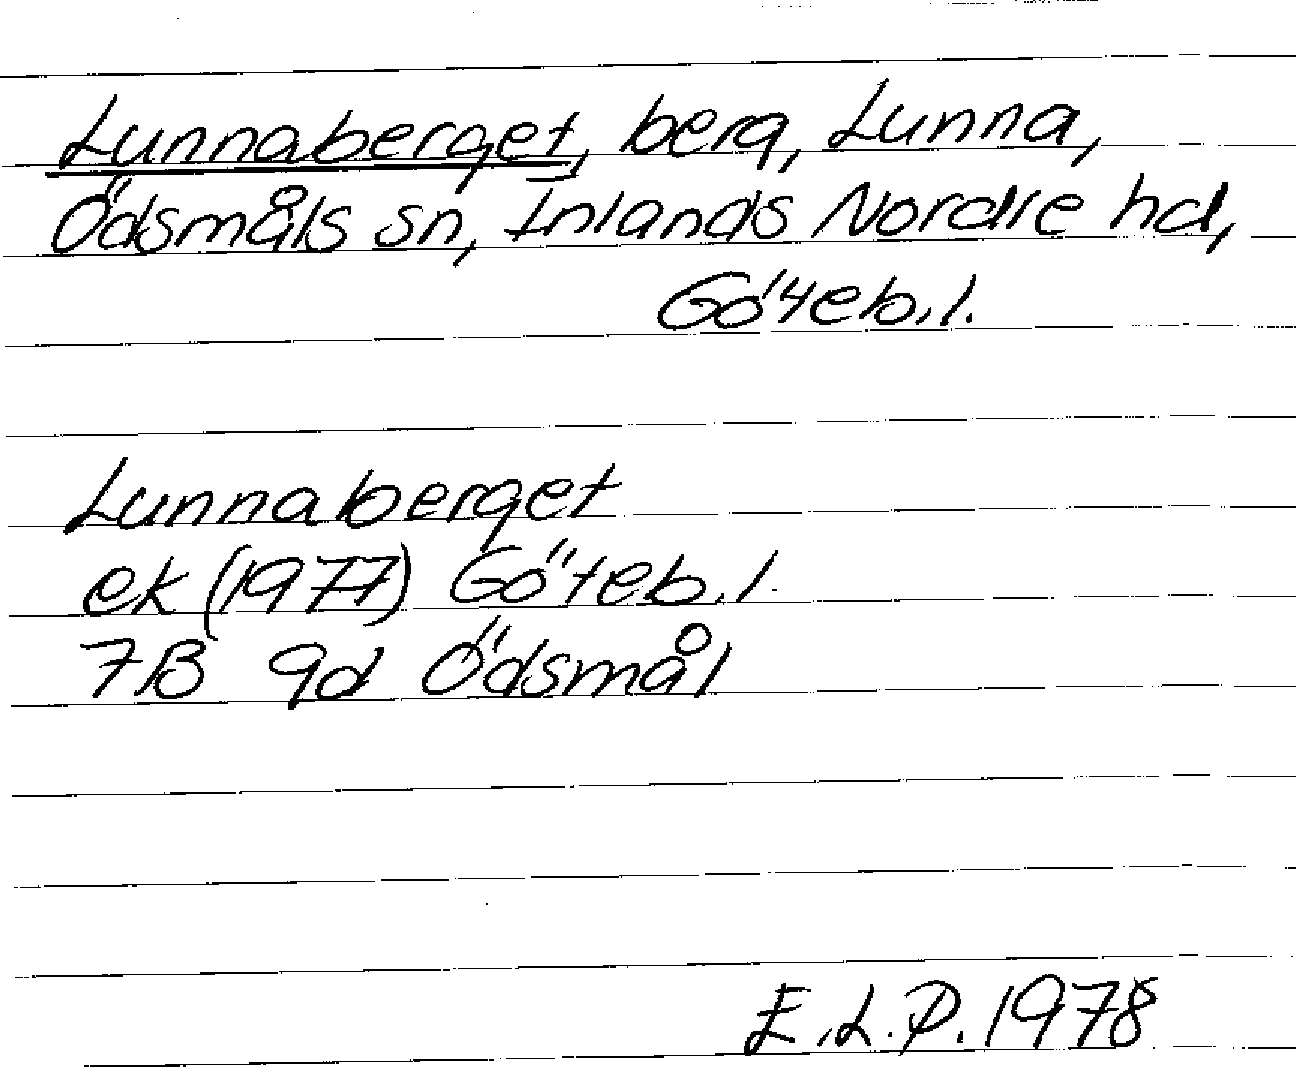 Lunnaberget, berg, Lunna,
Ödsmåls sn, Inlands Nordre hd,
Göteb.l.
Lunnaberget
ek (1977) Göteb.l.
7B 9d Ödsmål
E.L.P. 1978